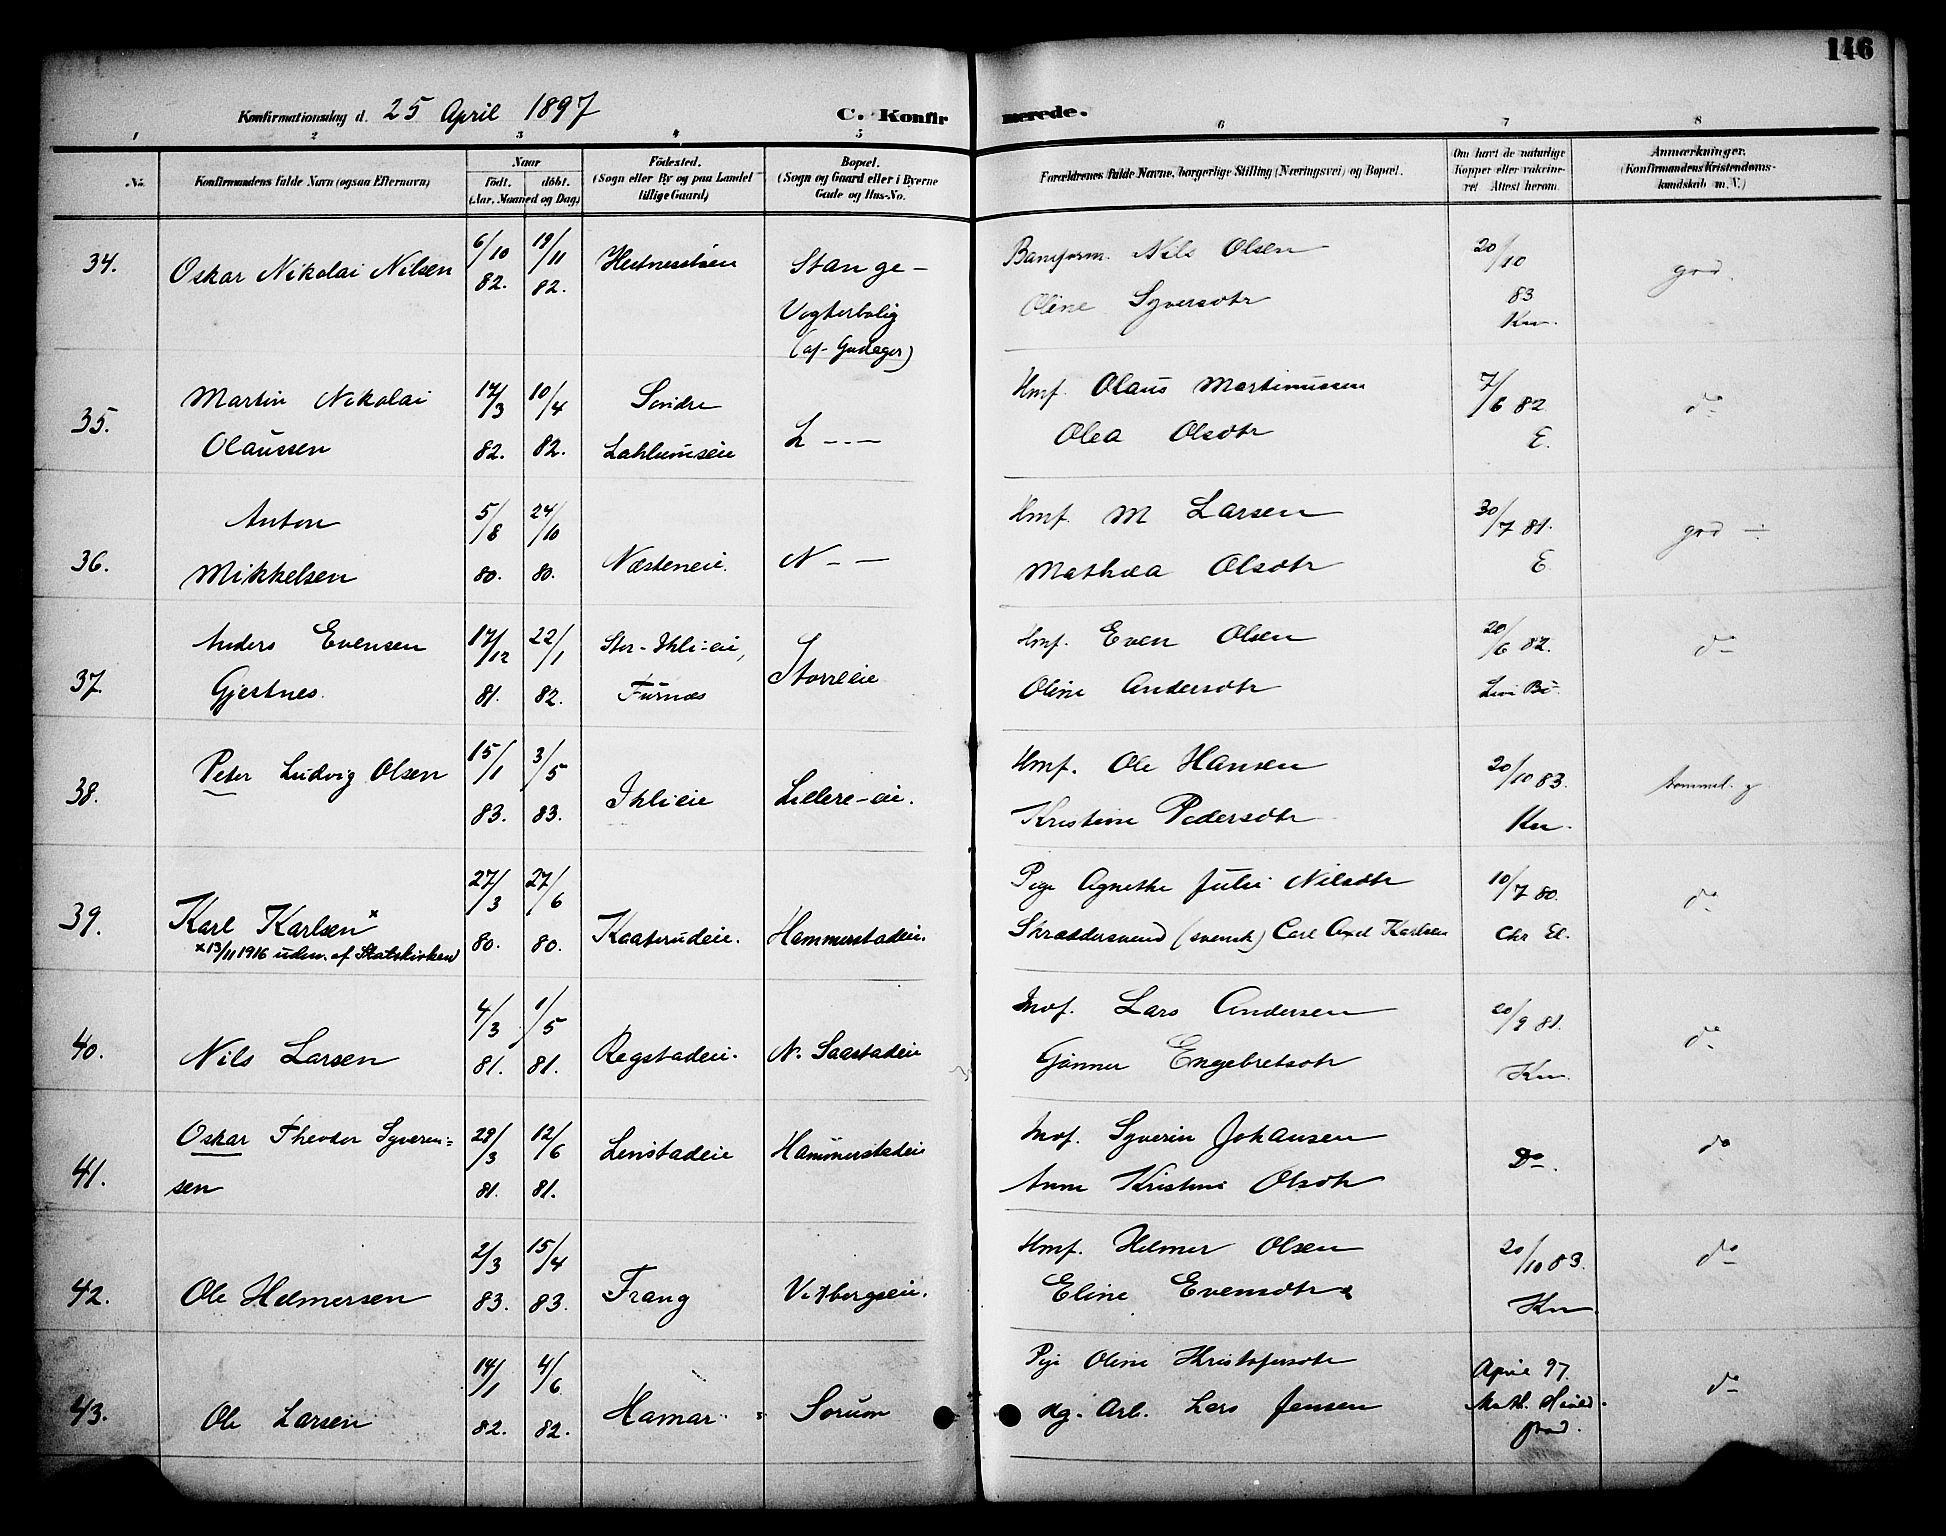 146
Konfirmationsdag d. 25 April 1897
C. Konfirmerede.
1 2 3 4 5 6 7 8
No.
Konfirmandens fulde Navn (ogsaa Efternavn)
Naar
födt. döbt.
(Aar, Maaned og Dag)
Födested.
(Sogn eller By og paa Landet
tillige Gaard)
Bopæl.
(Sogn og Gaard eller i Byerne
Gade og Hus-No.
Forældrenes fulde Navne, borgerlige Stilling (Næringsvei) og Bopæl.
Om havt de naturlige
Kopper eller vakcine-
ret Attest herom.
Anmærkninger.
(Konfirmandens Kristendoms-
kundskab m. V.)
34.
Oskar Nikolai Nilsen
6/10 82.
19/11 82.
Stange-
Vogterbolig
Baneform. Nils Olsen
Oline Syversdtr
20/10 83
Kn.
god.
35.
Martin Nikolai
Olaussen
17/3 82.
10/4 82.
Söndre
Lahlumseie
L - - -
Hmf. Olaus Martinussen
Olea Olsdtr
7/6 82
E.
do
36.
Anton
Mikkelsen
5/8 80.
24/10 80.
Næsteneie.
N - -
Hmf. M Larsen
Mathea Olsdtr
30/7 81.
E
god ÷
37.
Anders Evensen
Gjestnes.
17/12 81.
22/1 82.
Stor-Ihli-eie,
Furnæs
Storreeie
Hmf. Even Olsen
Oline Andersdtr
20/6 82.
do
38.
Peter Ludvig Olsen
15/1 83.
3/5 83.
Ihlieie
Lillere-eie.
Hmf. Ole Hansen
Kristine Pedersdtr
20/10 83.
Kn.
39.
Karl Karlsen x
x 13/11 1916 udm. af Statskirken
27/3 80.
27/6 80.
Kaaterudeie.
Hammerstadeie.
Pige Agnethe Julie Nilsdtr
Skræddersvend (svensk) Carl Axel Karlsen
10/7 80.
Chr El.
do
40.
Nils Larsen
4/3 81.
1/5 81.
Regstadeie.
N. Saastadeie
Inof. Lars Andersen
Gjønner Engebretsdtr
20/9 81.
Kn.
do
41.
Oskar Theodor Syverin=
sen
29/3 81.
12/6 81.
Linstadeie
Hammerstadeie
Inof. Syverin Johansen
Anne Kristine Olsdtr
Do.
do
42.
Ole Helmersen
2/3 83.
15/4 83.
Frang
Vixbergseie.
Hmf. Helmer Olsen
Eline Evensdtr
20/10 83.
Kn
do
43.
Ole Larsen
14/1 82.
4/6 82.
Hamar
Sorum
Pige Oline Kristofersdtr
Ug. Arb. Lars Jensen
April 97.
do